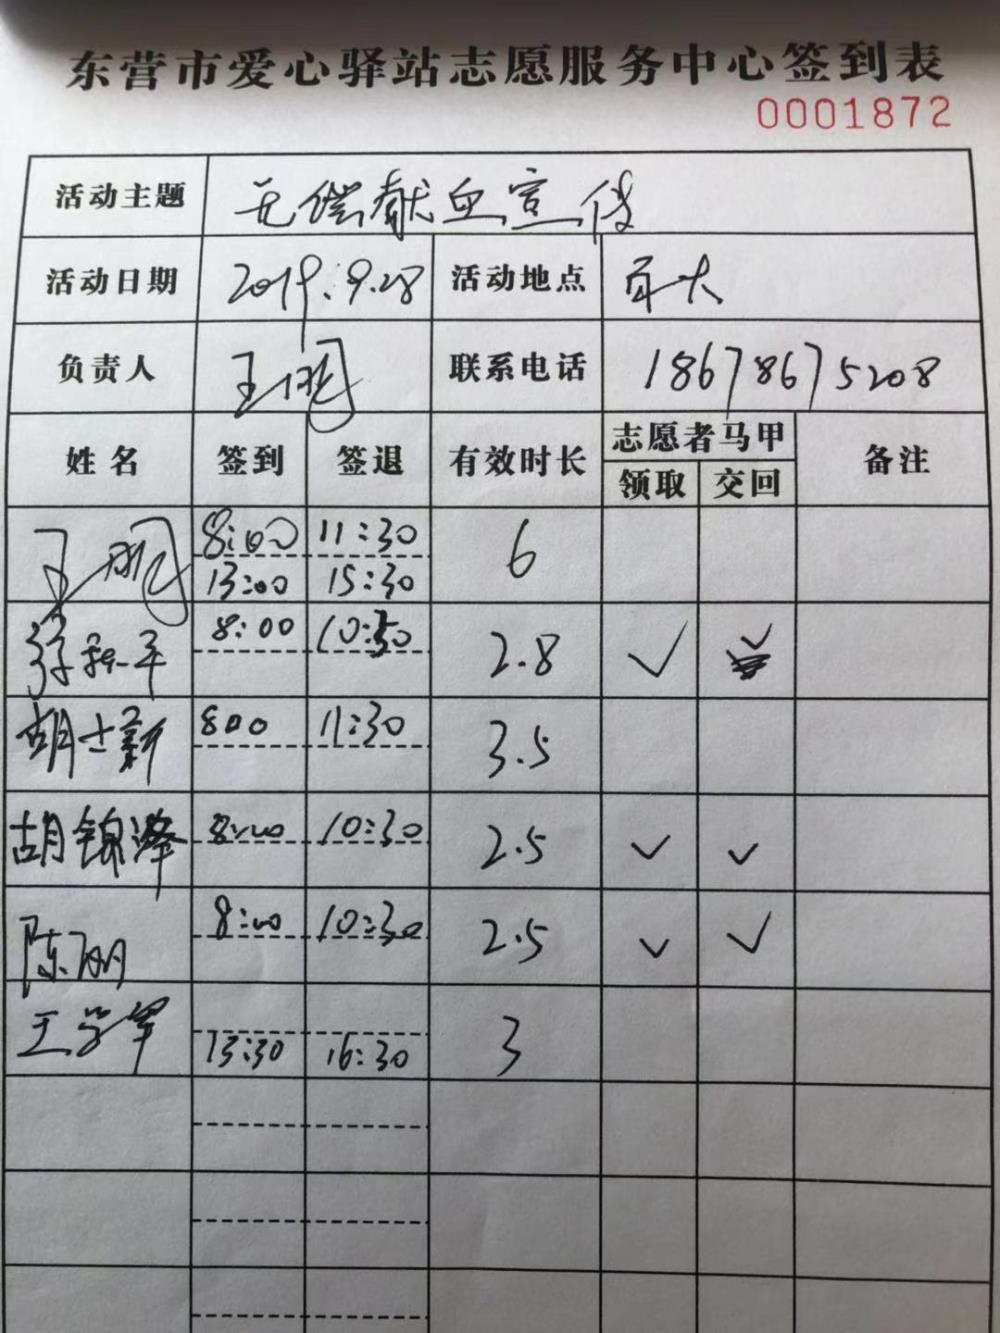 东营市爱心驿站志愿服务中心签到表
0001872
活动主题 无偿献血宣传
活动日期 2019.9.28 活动地点 百大
负责人 王鹏 联系电话 18678675208
姓名 签到 签退 有效时长 志愿者马甲 备注
领取 交回
王鹏 8:00 11:30 6
13:00 15:30
8:00 10:50 2.8 ✓ ✓
胡士新 800 11:30 3.5
胡锦 8:00 10:30 2.5 ✓ ✓
陈丽 8:00 10:30 2.5 ✓ ✓
王学军 13:30 16:30 3